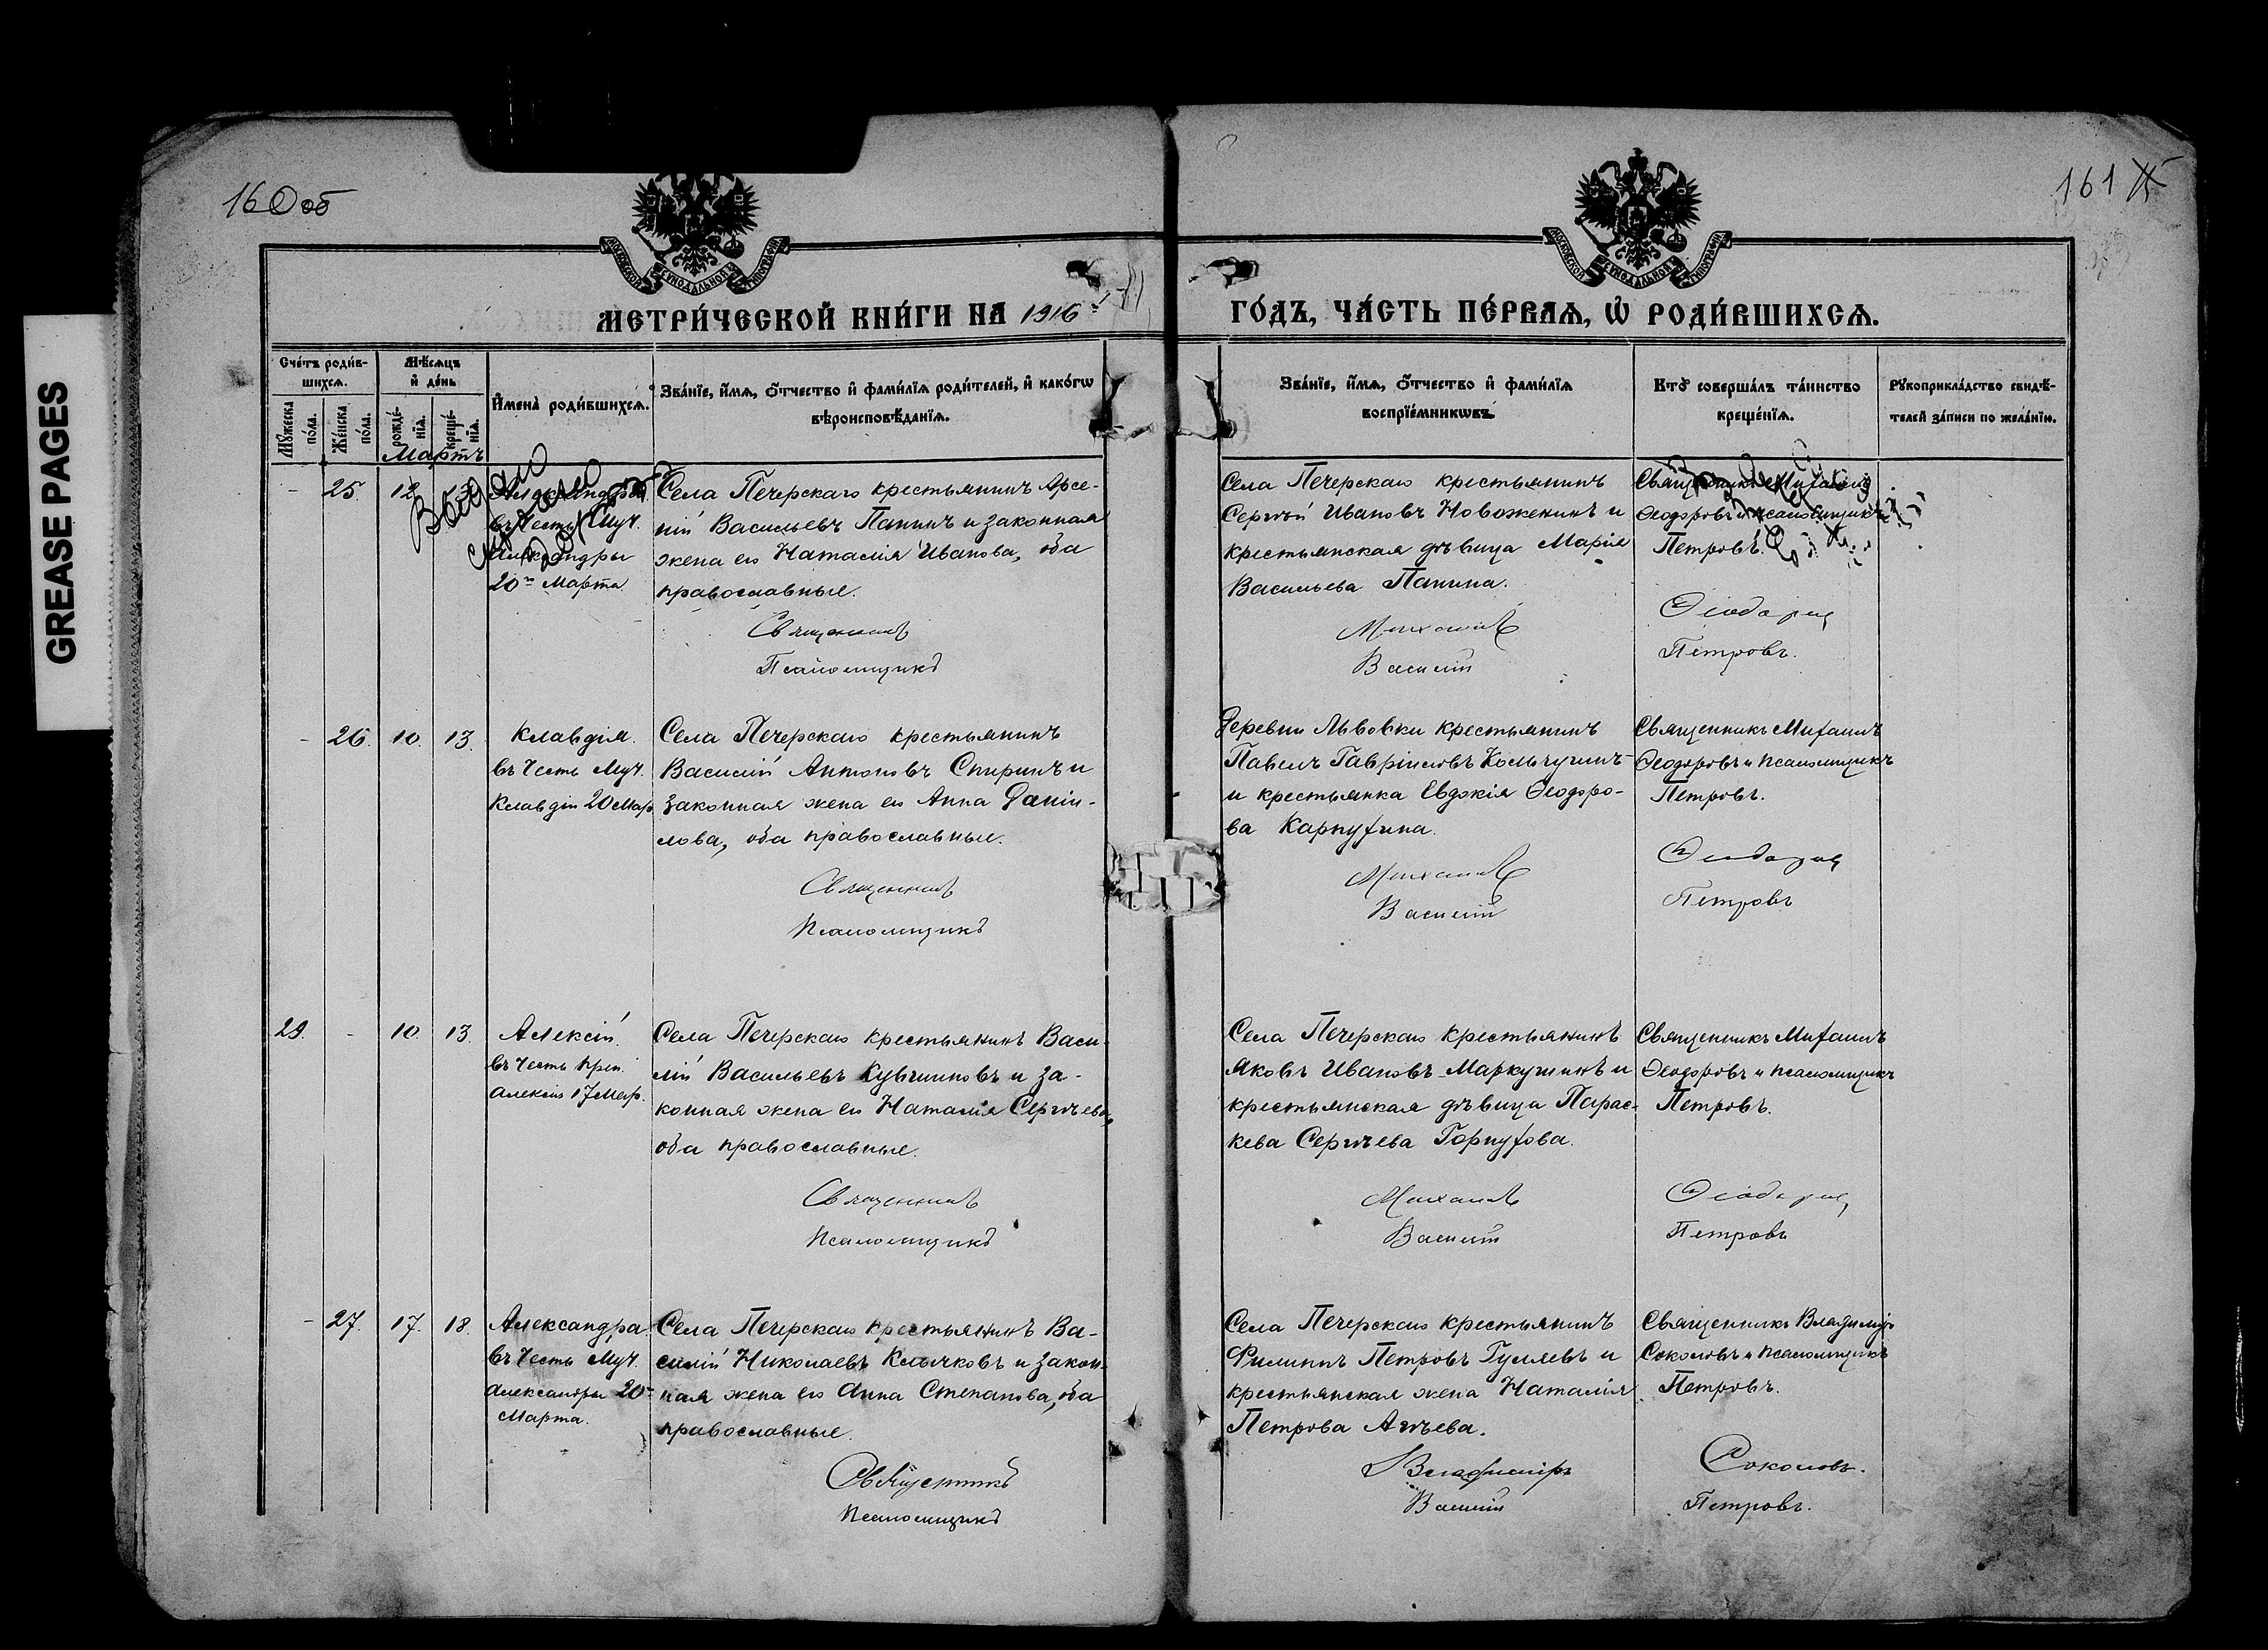 GREASE PAGES
160 об
161
МОСКОВСКОЙ СѴНОДАЛЬНОЙ ТИПОГРАФІИ
МОСКОВСКОЙ СѴНОДАЛЬНОЙ ТИПОГРАФІИ
МЕТРИ́ЧЕСКОЙ КНИ́ГИ НА 1916 ГО́ДЪ, ЧА́СТЬ ПЕ́РВАѦ, Ѡ҆ РОДИ́ВШИХСѦ.
Сче́тъ роди́в-
шихсѧ.
Мꙋ́жеска по́ла.
Же́нска по́ла.
Мѣ́сѧцъ
и҆ де́нь
рожде́-
нїѧ.
креще́-
нїѧ.
И҆мена̀ роди́вшихсѧ.
Зва́нїе, и҆́мѧ, ѻ҆́тчество и҆ фами́лїѧ роди́телей, и҆ како́гѡ
вѣроисповѣ́данїѧ.
Зва́нїе, и҆́мѧ, ѻ҆́тчество и҆ фами́лїѧ
воспрїе́мникѡвъ.
Кто̀ соверша́лъ та́инство
креще́нїѧ.
Рꙋкоприкла́дство свидѣ́-
телей за́писи по жела́нїю.
Мартъ
- 25. 12. 13. Александра
въ честь Муч.
Александры
20го Марта
Села Печерскаго крестьянинъ Арсе-
ній Васильевъ Панинъ и законная
жена его Наталія Иванова, оба
православные.
Священникъ
Псаломщикъ
Села Печерскаго крестьянинъ
Сергѣй Ивановъ Новоженинъ и
крестьянская дѣвица Марія
Васильева Панина.
Михаилъ
Василій
Священникъ Михаилъ
Ѳеодоровъ и псаломщикъ
Петровъ.
Ѳеодоровъ
Петровъ.
- 26. 10. 13. Клавдія.
въ честь Муч.
Клавдіи 20 Мар.
Села Печерскаго крестьянинъ
Василій Антоновъ Спиринъ и
законная жена его Анна Даніи-
лова, оба православные.
Священникъ
Псаломщикъ
Деревни Львовки крестьянинъ
Павелъ Гавріиловъ Кольчугинъ
и крестьянка Евдокія Ѳеодоро-
ва Карпухина.
Михаилъ
Василій
Священникъ Михаилъ
Ѳеодоровъ и псаломщикъ
Петровъ.
Ѳеодоровъ
Петровъ
29. - 10. 13. Алексій.
въ честь прп.
Алексія 17 Мар.
Села Печерскаго крестьянинъ Васи-
лій Васильевъ Кувшиновъ и за-
конная жена его Наталія Сергѣева,
оба православные.
Священникъ
Псаломщикъ
Села Печерскаго крестьянинъ
Яковъ Ивановъ Маркушинъ и
крестьянская дѣвица Парас-
кева Сергѣева Горпухова.
Михаилъ
Василій
Священникъ Михаилъ
Ѳеодоровъ и псаломщикъ
Петровъ.
Ѳеодоровъ
Петровъ
- 27. 17. 18. Александра
въ честь Муч.
Александры 20го
Марта.
Села Печерскаго крестьянинъ Ва-
силій Николаевъ Клычковъ и закон-
ная жена его Анна Степанова, оба
православные.
Священникъ
Псаломщикъ
Села Печерскаго крестьянинъ
Филиппъ Петровъ Гуляевъ и
крестьянская жена Наталія
Петрова Агѣева.
Владиміръ
Василій
Священникъ Владиміръ
Соколовъ и псаломщикъ
Петровъ.
Соколовъ.
Петровъ.